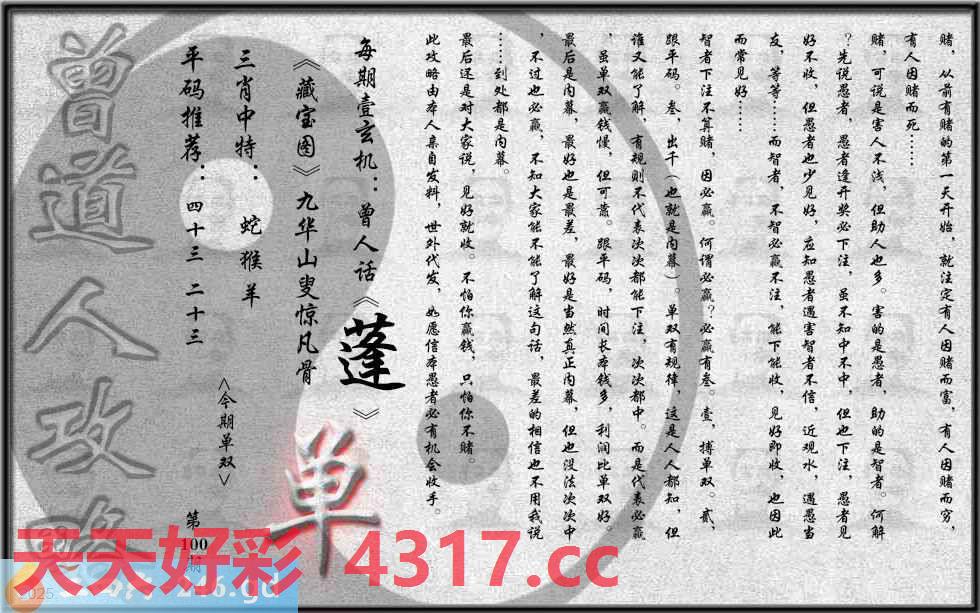 赌，从前有赌的第一天开始，就注定有人因赌而富，有人因赌而穷，
有人因赌而死……
赌，可说是害人不浅，但助人也多。害的是愚者，助的是智者。何解
？先说愚者，愚者逢开奖必下注，虽不知中不中，但也下注，愚者见
好不收，但愚者也少见好，应知愚者遇害智者不信，近观水，遇愚当
友，等等……而智者，不智必赢不注，能下能收，见好即收，也因此
而常见好……
智者下注不算赌，因必赢。何谓必赢？必赢有叁。壹，搏单双。贰，
跟平码。叁，出千（也就是内幕）。单双有规律，这是人人都知，但
谁又能了解，有规则不代表次次都能下注，次次都中。而是代表必赢
，虽单双赢钱慢，但可靠。跟平码，时间长本钱多，利润比单双好。
最后是内幕，最好也是最差，最好是当然真正内幕，但也没法次次中
，不过也必赢，不知大家能不能了解这句话，最差的相信也不用我说
……到处都是内幕。
最后还是对大家说，见好就收。不怕你赢钱，只怕你不赌。
此攻略由本人亲自发料，世外代发，如愿信本愚者必有机会收手。
每期壹玄机：曾人话《蓬》
《藏宝图》九华山叟惊凡骨
三肖中特：蛇猴羊
平码推荐：四十三 二十三
<今期单双>
单
第100期
曾道人攻略
天天好彩 4317.cc
2025
246.gd